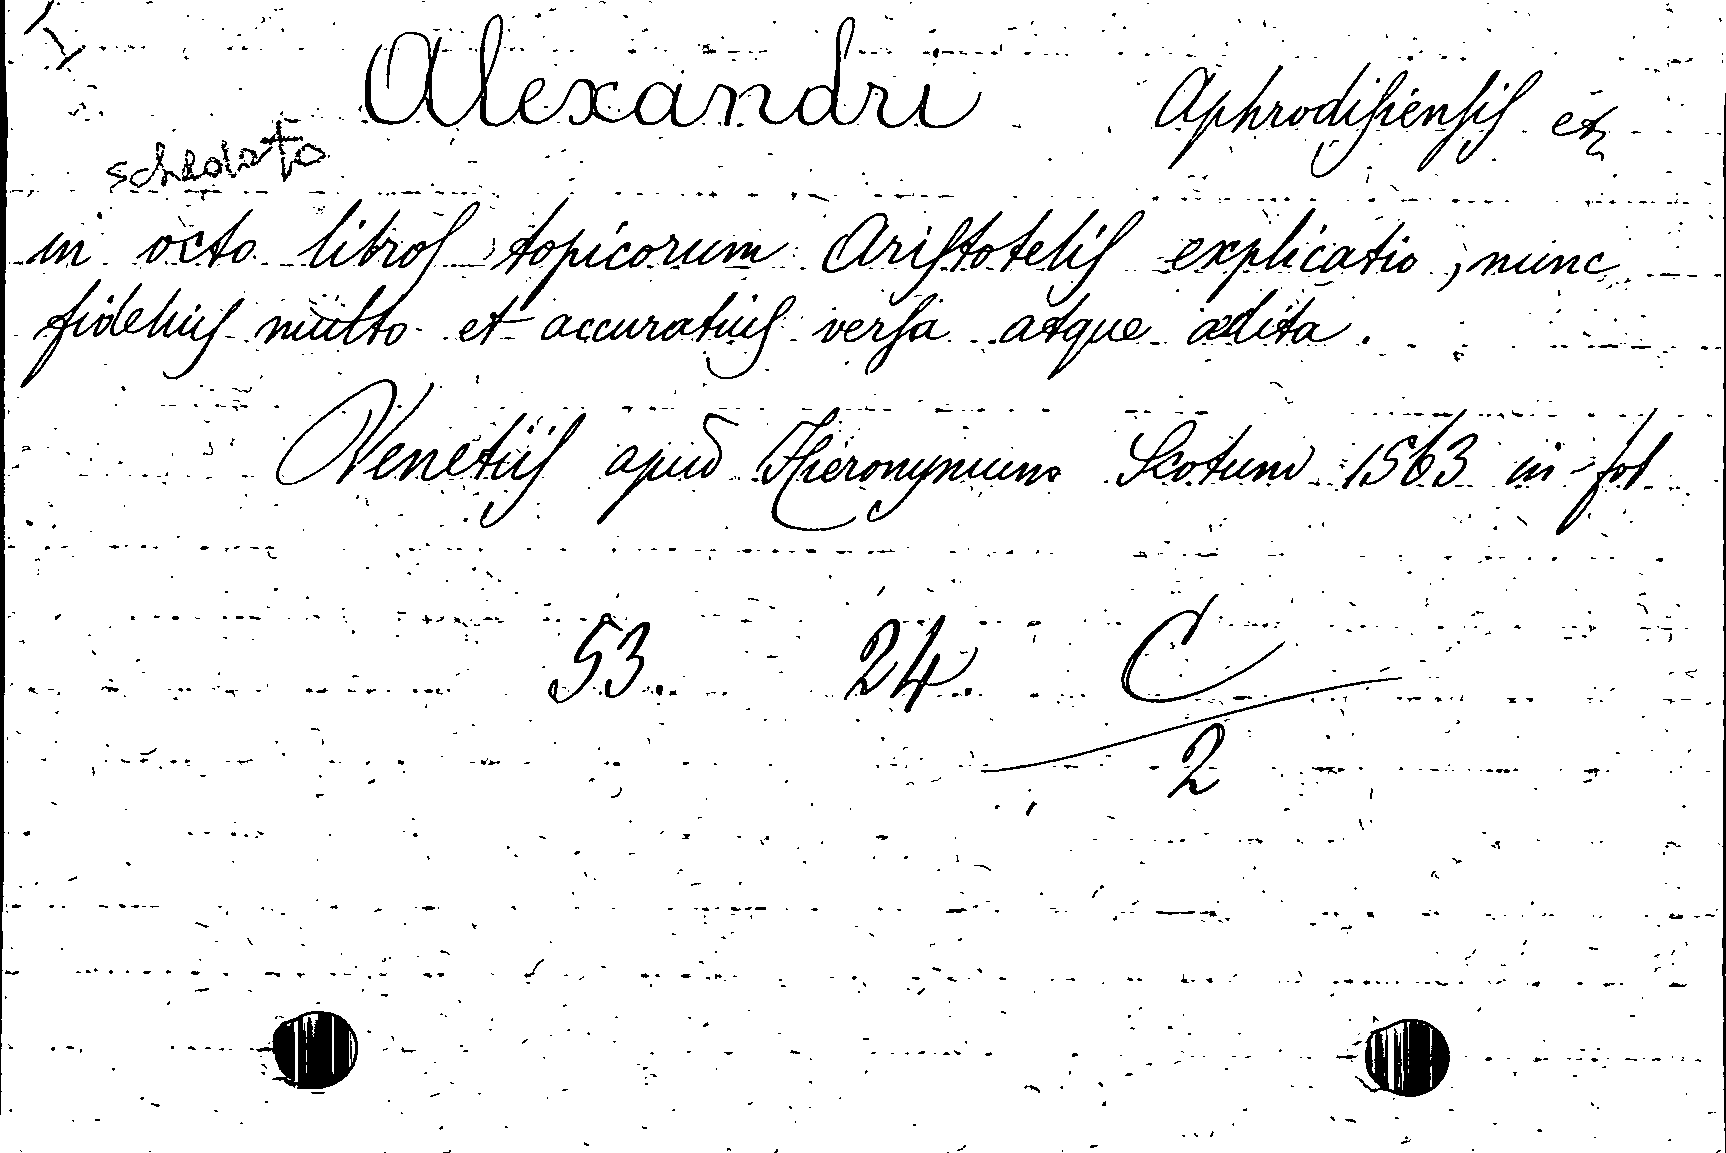 Alexandri Aphrodisiensis et
schedato
in octo libros topicorum Aristotelis explicatio, nunc
fidelius multo et accuratius versa atque ædita.
Venetiis apud Hieronymum Scotum 1563 in-fol
53. 24. C
2